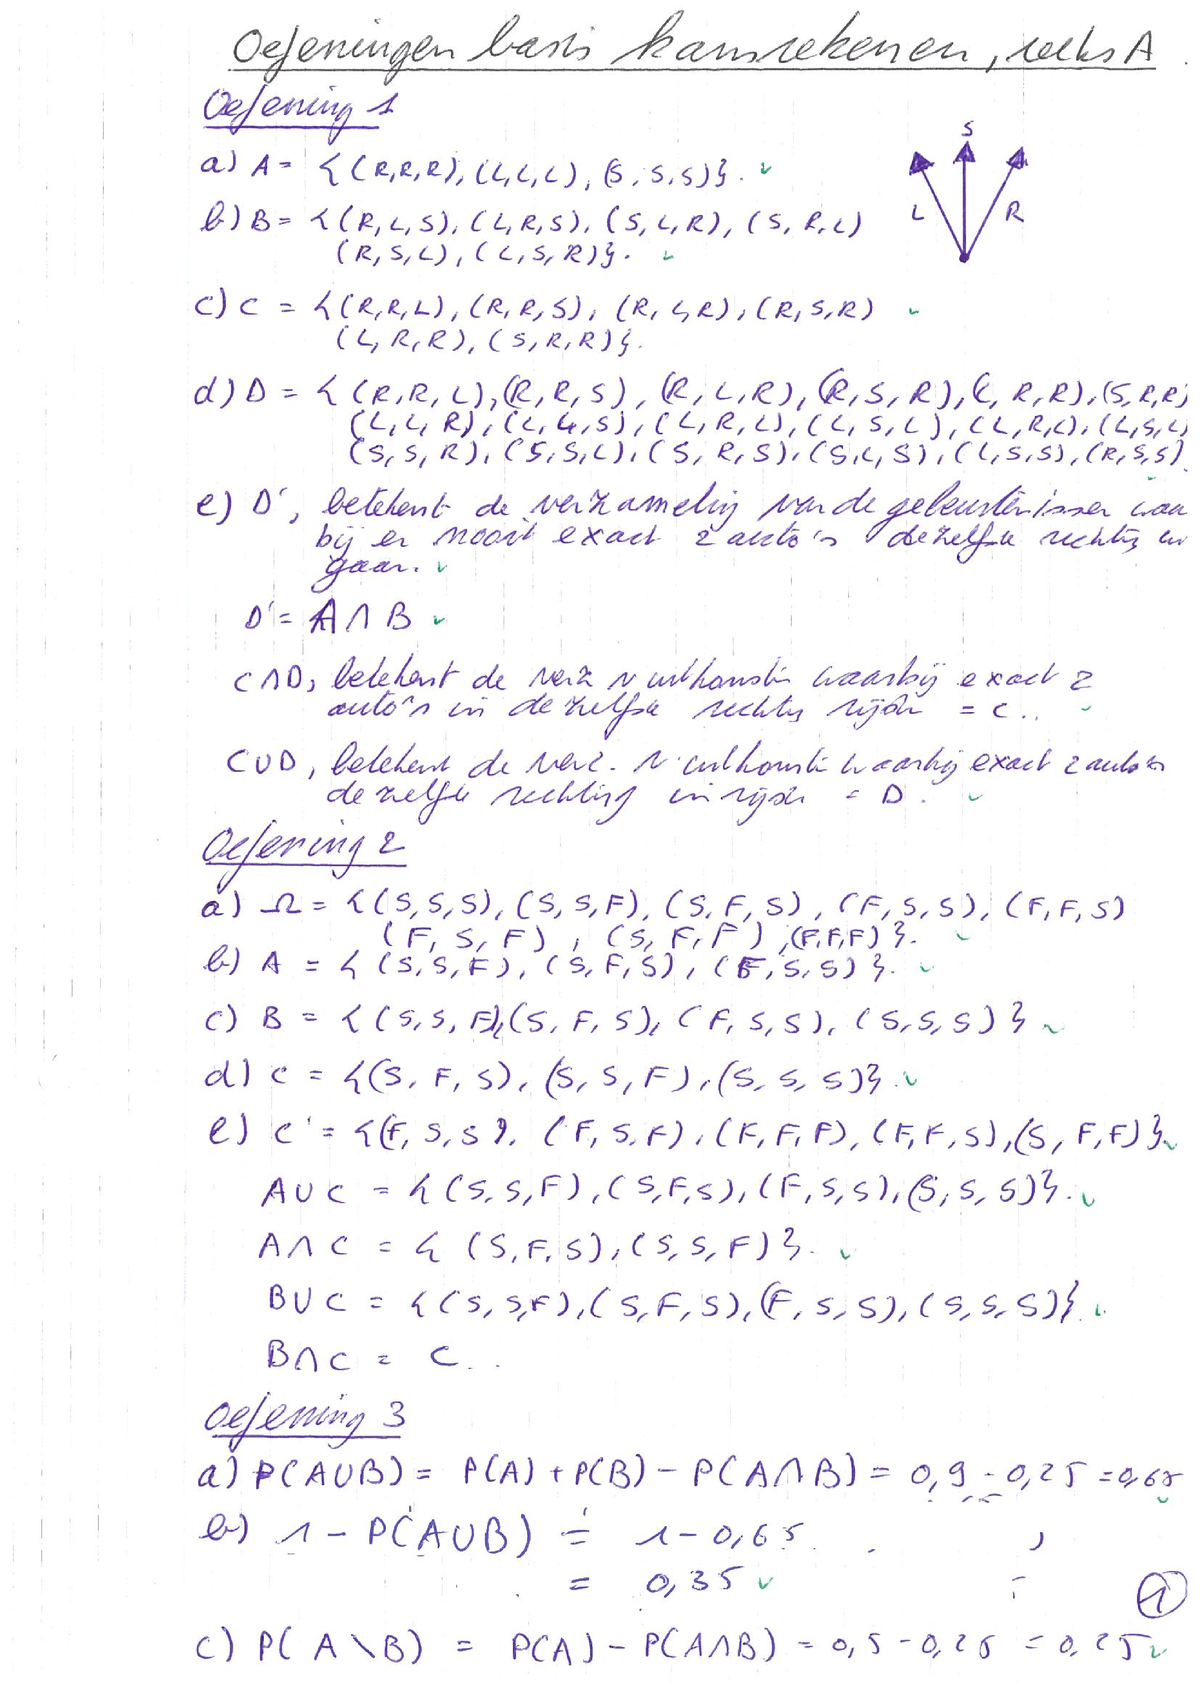 Oefeningen basis kansrekenen, reeks A
Oefening 1
a) A = {(R,R,R), (L,L,L), (S,S,S)}.
S
L
R
b) B = {(R,L,S), (L,R,S), (S,L,R), (S,R,L)
(R,S,L), (L,S,R)}.
c) C = {(R,R,L), (R,R,S), (R,L,R), (R,S,R)
(L,R,R), (S,R,R)}.
d) D = {(R,R,L), (R,R,S), (R,L,R), (R,S,R), (L,R,R), (S,R,R)
(L,L,R), (L,L,S), (L,R,L), (L,S,L), (L,R,L), (L,S,L)
(S,S,R), (S,S,L), (S,R,S), (S,L,S), (L,S,S), (R,S,S)
e) D', betekent de verzameling van de gebeurtenissen waar
bij er nooit exact 2 auto's dezelfde richting in
gaan.
D' = A ∩ B
C∩D, betekent de verz v uitkomsten waarbij exact 2
auto's in dezelfde rechts rijden = C..
C∪D, betekent de verz. v. uitkomsten waarbij exact 2 auto's
dezelfde richting in rijden = D.
Oefening 2
a) Ω = {(S,S,S), (S,S,F), (S,F,S), (F,S,S), (F,F,S)
(F,S,F), (S,F,F), (F,F,F)}.
b) A = {(S,S,F), (S,F,S), (F,S,S)}.
c) B = {(S,S,F), (S,F,S), (F,S,S), (S,S,S)}
d) C = {(S,F,S), (S,S,F), (S,S,S)}.
e) C' = {(F,S,S), (F,S,F), (F,F,F), (F,F,S), (S,F,F)}.
A∪C = {(S,S,F), (S,F,S), (F,S,S), (S,S,S)}.
A∩C = {(S,F,S), (S,S,F)}.
B∪C = {(S,S,F), (S,F,S), (F,S,S), (S,S,S)}.
B∩C = C..
Oefening 3
a) P(A∪B) = P(A) + P(B) - P(A∩B) = 0,9 - 0,25 = 0,65
b) 1 - P(A∪B) = 1 - 0,65
= 0,35
1
c) P(A\B) = P(A) - P(A∩B) = 0,5 - 0,25 = 0,25